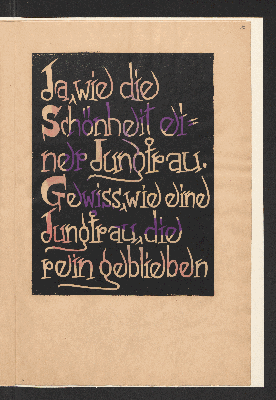 Ja, wie die
Schönheit ei=
ner Jungfrau.
Gewiss, wie eine
Jungfrau, die
rein geblieben